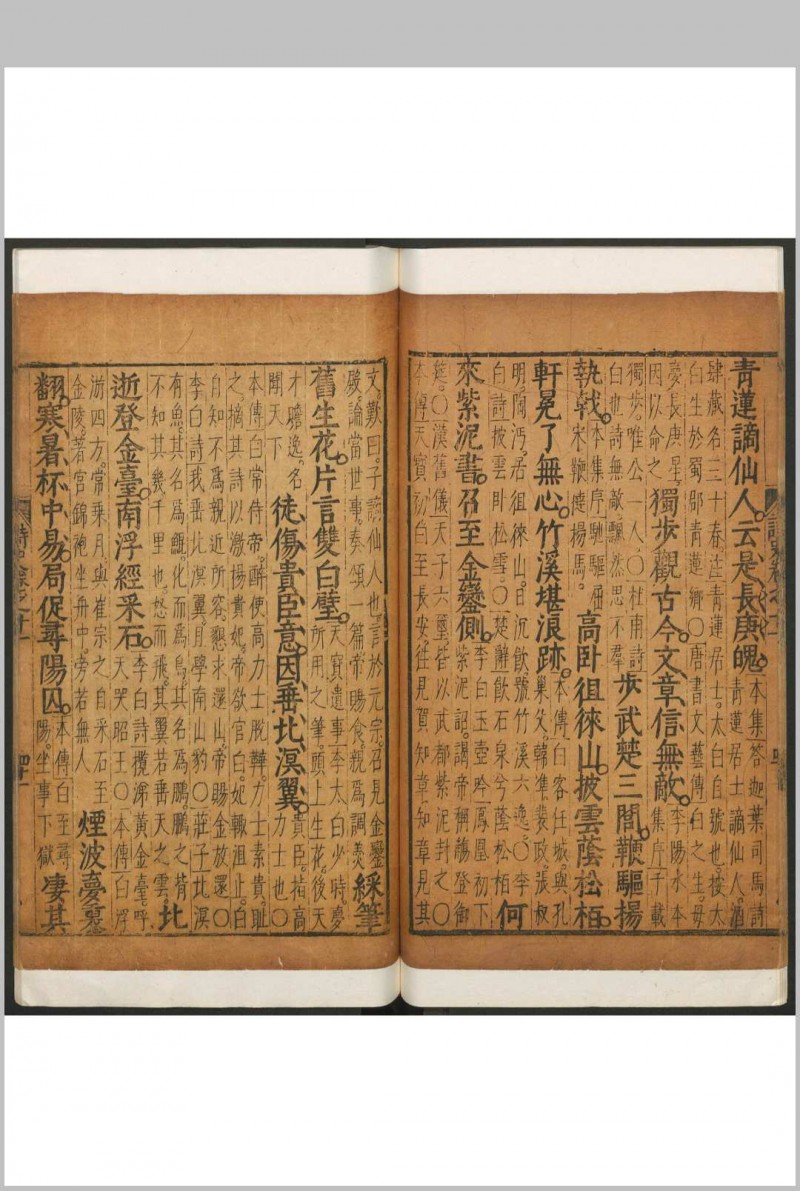 青蓮謫仙人。云是長庚魄。
本集答迦葉司馬詩
青蓮居士謫仙人。酒
肆藏名三十春。注青蓮居士。太白自號也。按太
白生於蜀郡青蓮鄉。〇唐書文藝傳白之生。母
夢長庚星。
因以命之
獨步觀古今。文章信無敵。
李陽氷本
集序千載
獨步。唯公一人。〇杜甫詩
白也詩無敵。飄然思不群
步武楚三閭。鞭驅揚
執戟。
本集序馳驅屈
宋鞭撻揚馬。
高卧徂徠山。披雲蔭松栢。
軒冕了無心。竹溪堪浪跡。
本傳白客任城。與孔
巢父。韓準。裴政。張叔
明。陶沔。居徂徠山。日沉飲。號竹溪六逸。〇李
白詩披雲卧松雪。〇楚辭飲石泉兮蔭松栢
何
來紫泥書。召至金鑾側。
李白玉壺吟鳳凰初下
紫泥詔。謁帝稱觴登御
筵。〇漢舊儀天子六璽。皆以武都紫泥封之〇
本傳天寶初白至長安。往見賀知章。知章見其
文。歎曰。子謫仙人也。言於元宗。召見金鑾
殿。論當世事。奏頌一篇。帝賜食。親為調羮
綵筆
舊生花。片言雙白璧。
天寶遺事李太白少時。夢
所用之筆。頭上生花。後天
才贍逸。名
聞天下
徒傷貴臣意。因垂北溟翼。
貴臣。指高
力士也〇
本傳白常侍帝。醉使高力士脫鞾。力士素貴。耻
之。摘其詩以激楊貴妃。帝欲官白。妃輙沮止。白
自知不為親近所容。懇求還山。帝賜金放還〇
李白詩我垂北溟翼。且學南山豹〇莊子北溟
有魚。其名為鯤。化而為鳥。其名為鵬。鵬之背
不知其幾千里也。怒而飛。其翼若垂天之雲。
北
逝登金臺。南浮經采石。
李白詩攬涕黃金臺。呼
天哭昭王〇本傳白浮
游四方。常乘月與崔宗之自采石至
金陵。著宮錦袍坐舟中。旁若無人
煙波夢裏
翻。寒暑杯中易。局促尋陽囚。
本傳白至尋
陽。坐事下獄
悽其